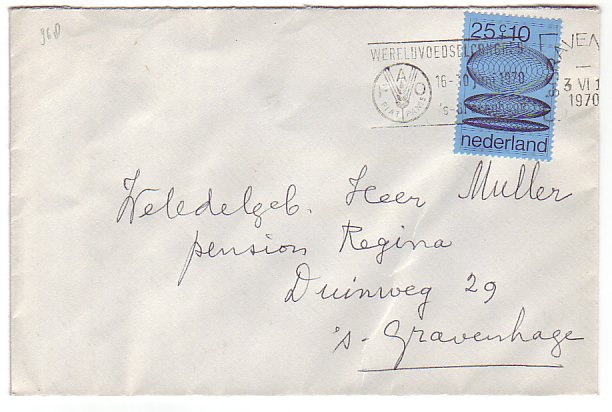 968
25 c+10
nederland
WERELDVOEDSELCONGRES
16-30 juni 1970
's-Gravenhage
FAO
FIAT PANIS
3 VI
1970
Weledelgeb. Heer Muller
pension Regina
Duinweg 29
's-Gravenhage